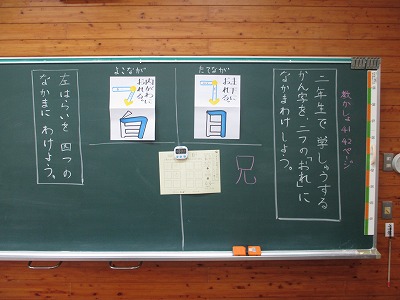 教かしょ41 42ページ
二年生で学しゅうする
かん字を、二つの「おれ」に
なかまわけしよう。
たてなが
目
兄
よこなが
内がわに
おれる。
白
左はらいを 四つの
なかまに わけよう。